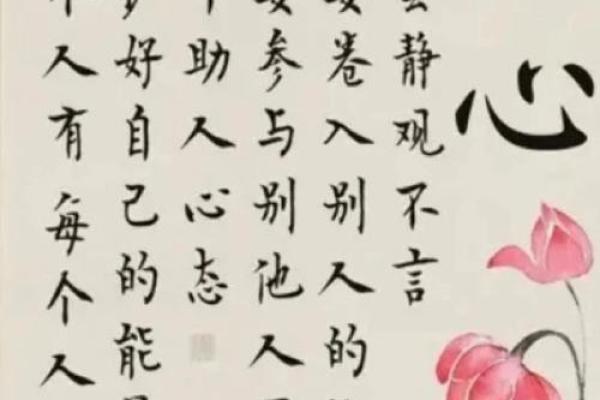 心
静观不言
卷入别人的
参与别他人
助人心态
好自己的能
人有每个人